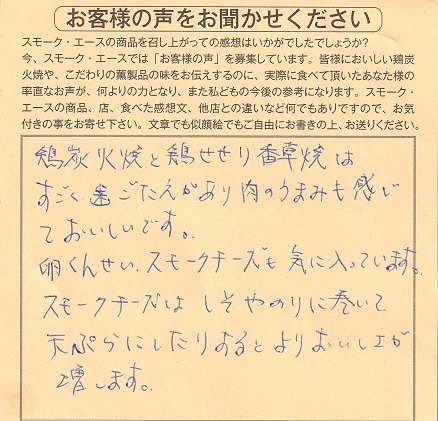 お客様の声をお聞かせください
スモーク・エースの商品を召し上がっての感想はいかがでしたでしょうか?
今、スモーク・エースでは「お客様の声」を募集しています。皆様においしい鶏炭
火焼や、こだわりの薫製品の味をお伝えするのに、実際に食べて頂いたあなた様の
率直なお声が、何よりの力となり、また私どもの今後の参考になります。スモーク・
エースの商品、店、食べた感想文、他店との違いなど何でもありですので、お気
付きの事をお寄せ下さい。文章でも似顔絵でもご自由にお書きの上、お送りください。
鶏炭火焼と鶏せせり香草焼は
すごく歯ごたえがあり肉のうまみも感じ
ておいしいです。
卵くんせい、スモークチーズも気に入っています。
スモークチーズはしそやのりに巻いて
天ぷらにしたりするとよりおいしさが
増します。